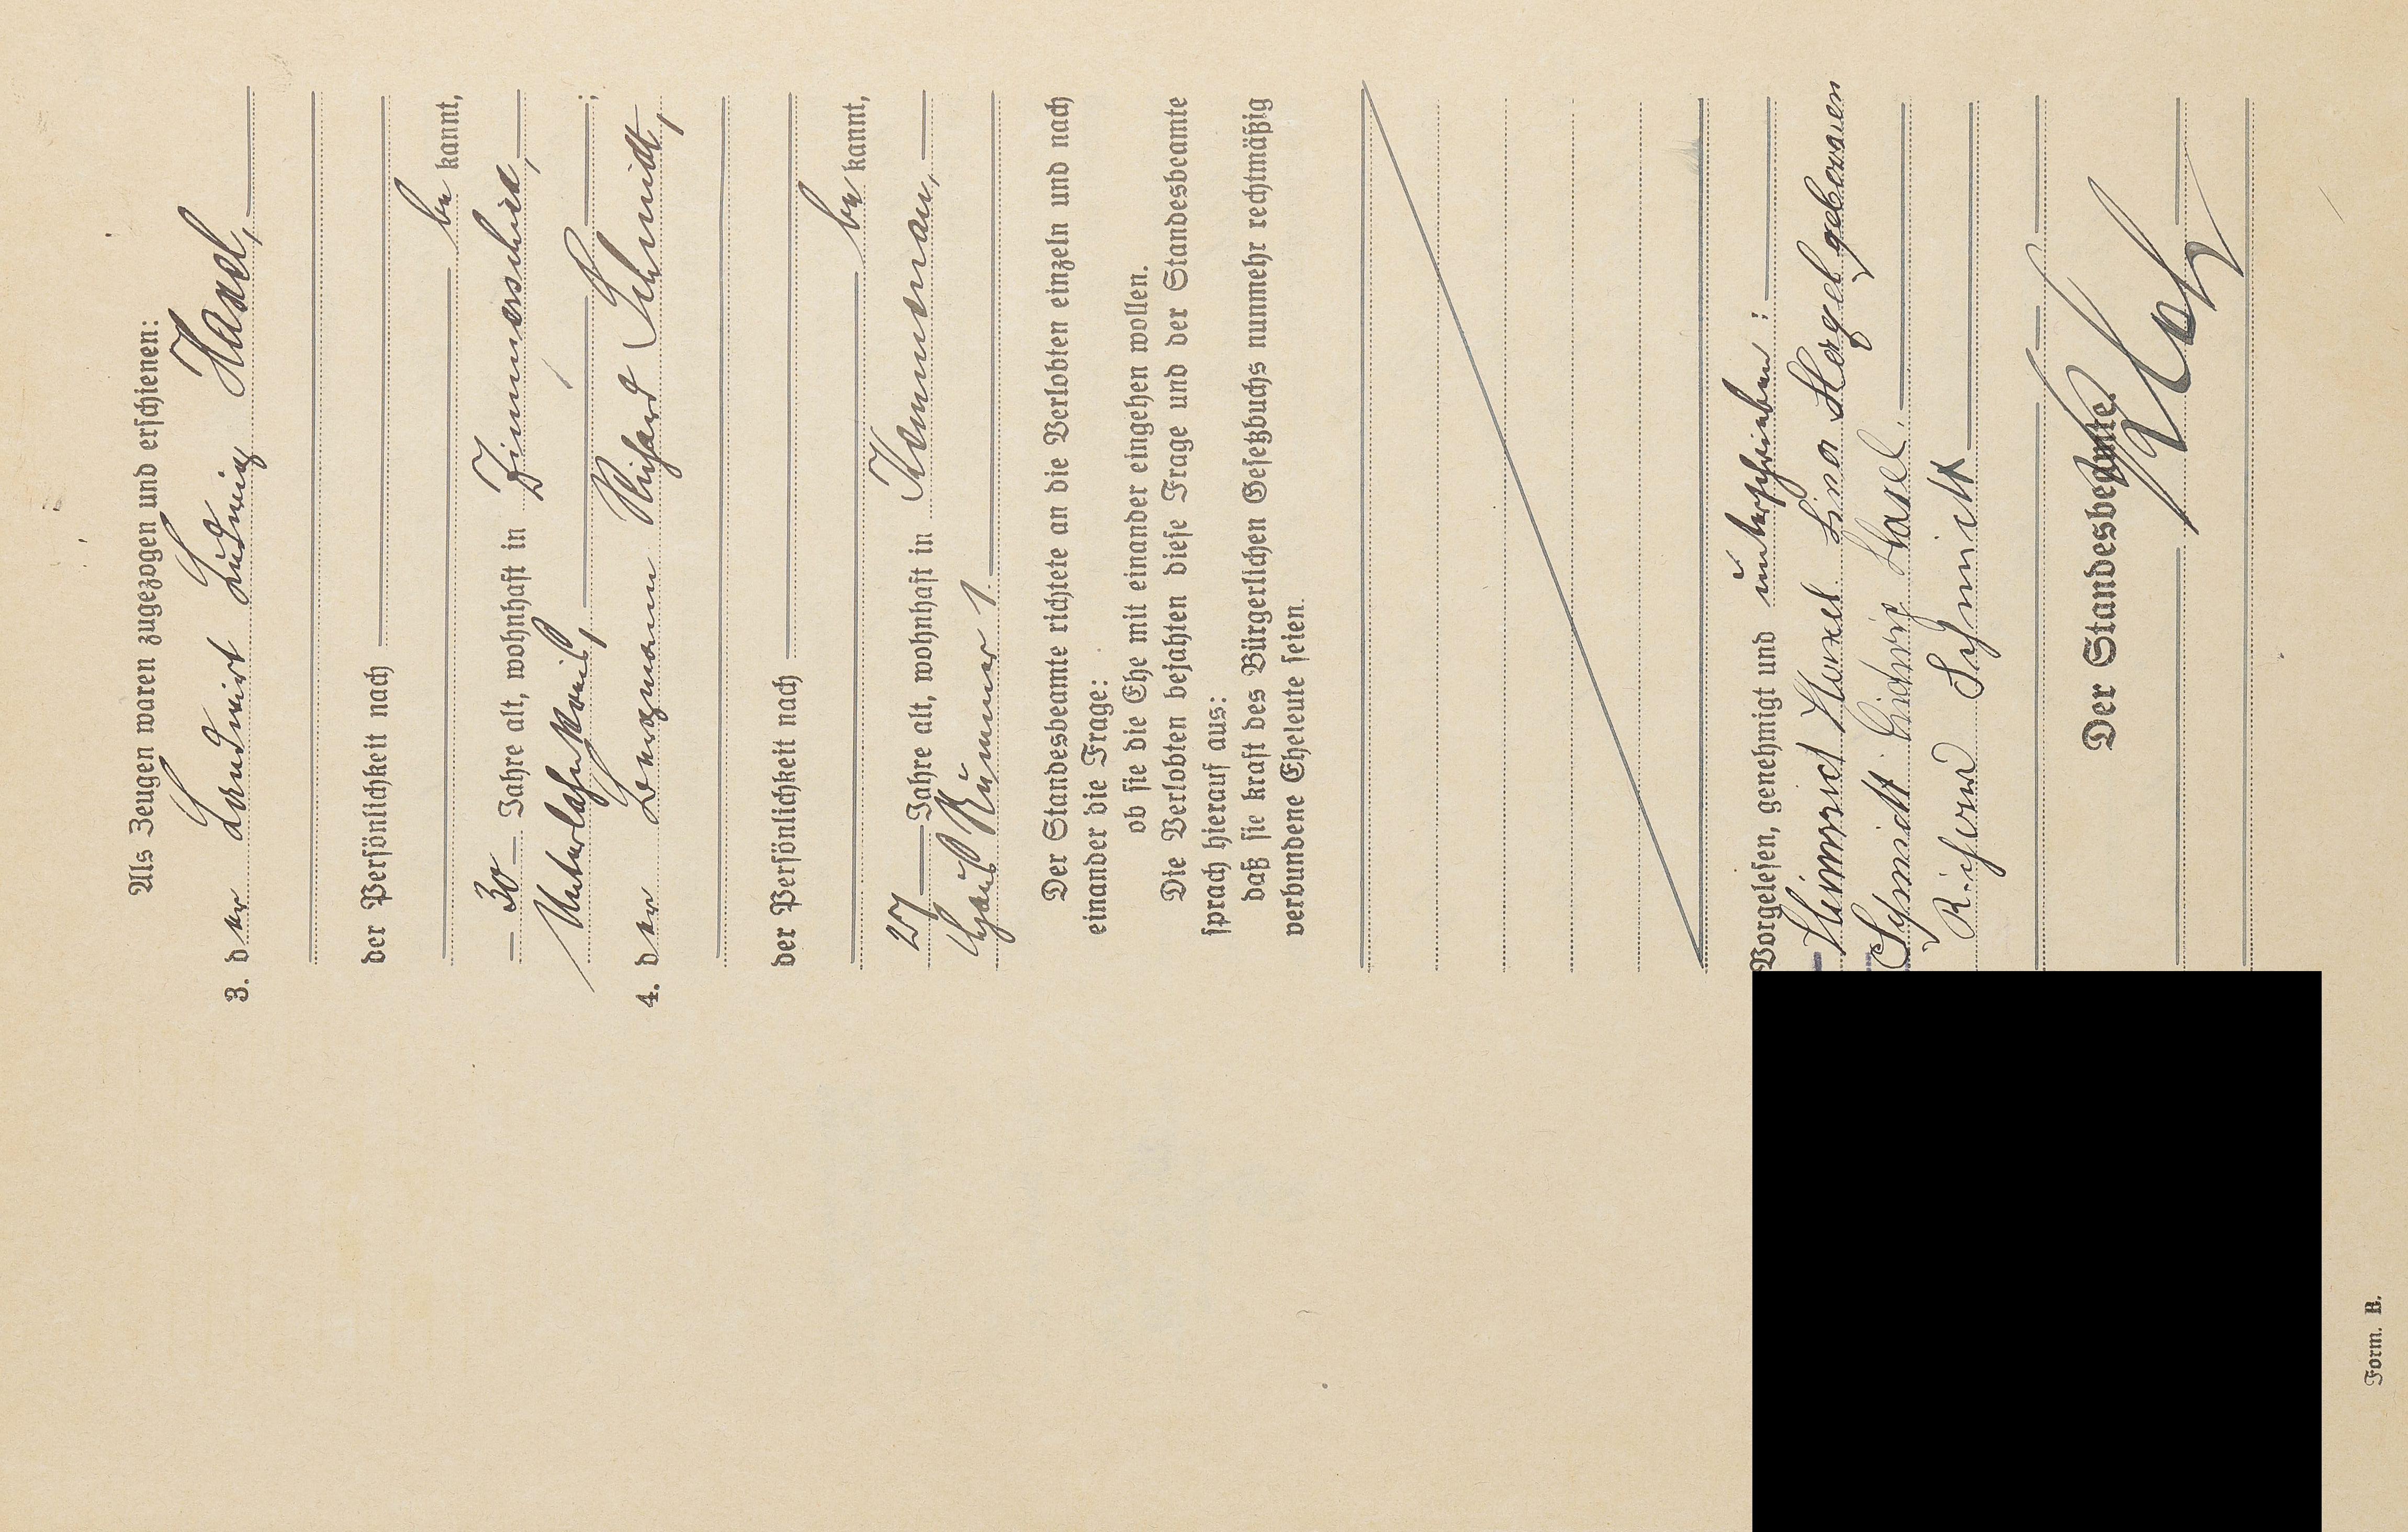 Als Zeugen waren zugezogen und erschienen:
3. der Landwirt Ludwig Haxel,
der Persönlichkeit nach
be kannt,
30 Jahre alt, wohnhaft in Zimmerschied,
Unterlahnkreis, ;
4. der Bergmann Richard Schmidt,
der Persönlichkeit nach
be kannt,
27 Jahre alt, wohnhaft in Kemmenau,
Haus Nummer 1.
Der Standesbeamte richtete an die Verlobten einzeln und nach
einander die Frage:
ob sie die Ehe mit einander eingehen wollen.
Die Verlobten bejahten diese Frage und der Standesbeamte
sprach hierauf aus:
daß sie kraft des Bürgerlichen Gesetzbuchs nunmehr rechtmäßig
verbundene Eheleute seien.
Vorgelesen, genehmigt und unterschrieben:
Heinrich Haxel Lina Haxel geborenen
Schmidt. Ludwig Haxel.
Richard Schmidt
Der Standesbeamte.
Form. B.